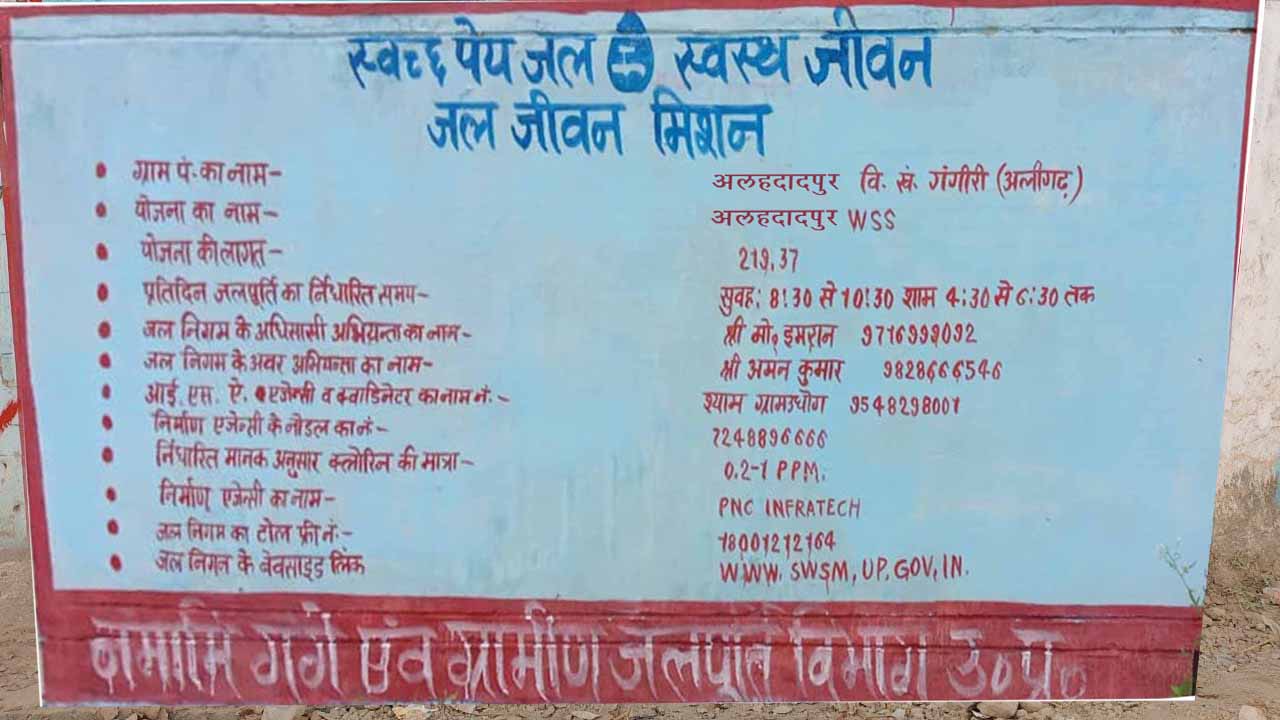 स्वच्छ पेय जल स्वस्थ जीवन
जल जीवन मिशन
• ग्राम पं. का नाम- अलहदादपुर वि. खं. गंगीरी (अलीगढ़)
• योजना का नाम- अलहदादपुर WSS
• योजना की लागत- 219.37
• प्रतिदिन जलपूर्ति का र्निधारित समय- सुवह: 8:30 से 10:30 शाम 4:30 से 6:30 तक
• जल निगम के अधिसासी अभियन्ता का नाम- श्री मो० इमरान 9716999092
• जल निगम के अवर अभियन्ता का नाम- श्री अमन कुमार 9828666546
• आई. एस. ऐ. एजेन्सी व क्वाडिनेटर का नाम नं.- श्याम ग्रामउधोग 9548298001
• निर्माण एजेन्सी के नोडल का नं- 7248896666
• र्निधारित मानक अनुसार क्लोरिन की मात्रा- 0.2-1 PPM.
• निर्माण एजेन्सी का नाम- PNC INFRATECH
• जल निगम का टोल फ्री नं:- 18001212164
• जल निगम के बेवसाइड लिंक WWW. SWSM, UP, GOV, IN.
नमामि गंगे एवं ग्रामीण जलपूर्ति विभाग उ०प्र०